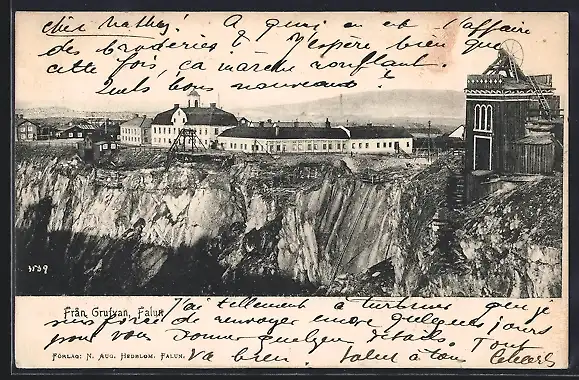 cher Mathey! A quoi en est l'affaire
des broderies? J'espère bien que
cette fois, ça marche ronflant.
Quels bons nouveaux?
3539
Från Grufvan, Falun.
J'ai tellement à que je
suis de renvoyer encore quelques jours
pour vous donner quelques détails. Tout
FÖRLAG: N. AUG. HEDBLOM. FALUN.
Va bien. Salut à tous